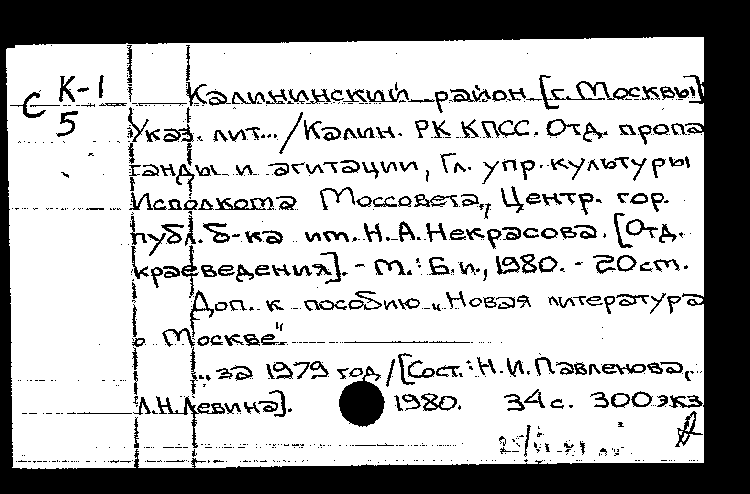 С К-1
5
Калининский район [г. Москвы]
Указ. лит... / Калин. РК КПСС. Отд. пропа
ганды и агитации, Гл. упр. культуры
Исполкома Моссовета, Центр. гор.
публ. б-ка им. Н.А. Некрасова. [Отд.
краеведения]. - М.: Б.и., 1980. - 20 см.
Доп. к пособию „Новая литература
о Москве"
... за 1979 год / [Сост.: Н.И. Павленова,
Л.Н. Левина]. 1980. 34 с. 300 экз